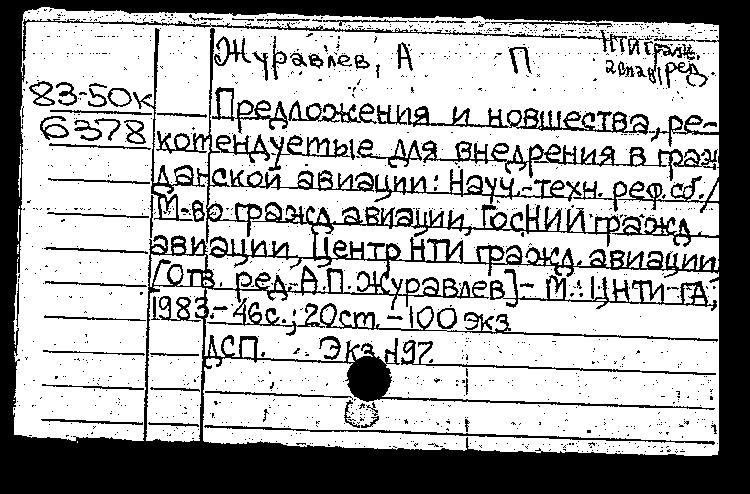 Журавлев, А П
НТИ гражд.
авиац ред.
83-50к
6378
Предложения и новшества, ре-
комендуемые для внедрения в граж
данской авиации: Науч.-техн. реф. сб. /
М-во гражд. авиации, ГосНИИ гражд.
авиации, Центр НТИ гражд. авиации
[Отв. ред. А.П. Журавлев] - М.: ЦНТИ-ГА,
1983.- 46с.; 20ст. - 100 экз
ДСП. Экз. N97.